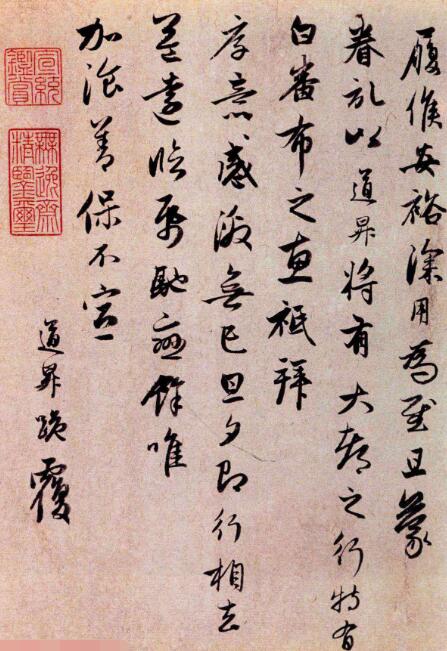 履候安裕深用為慰且蒙
眷記以道昇將有大都之行特有
白番布之惠祗拜
厚意感激無已旦夕即行相去
益遠臨帋馳戀餘唯
加湌善保不宣
道昇跪覆
宣統
鑑賞
無逸齋
精鑒璽